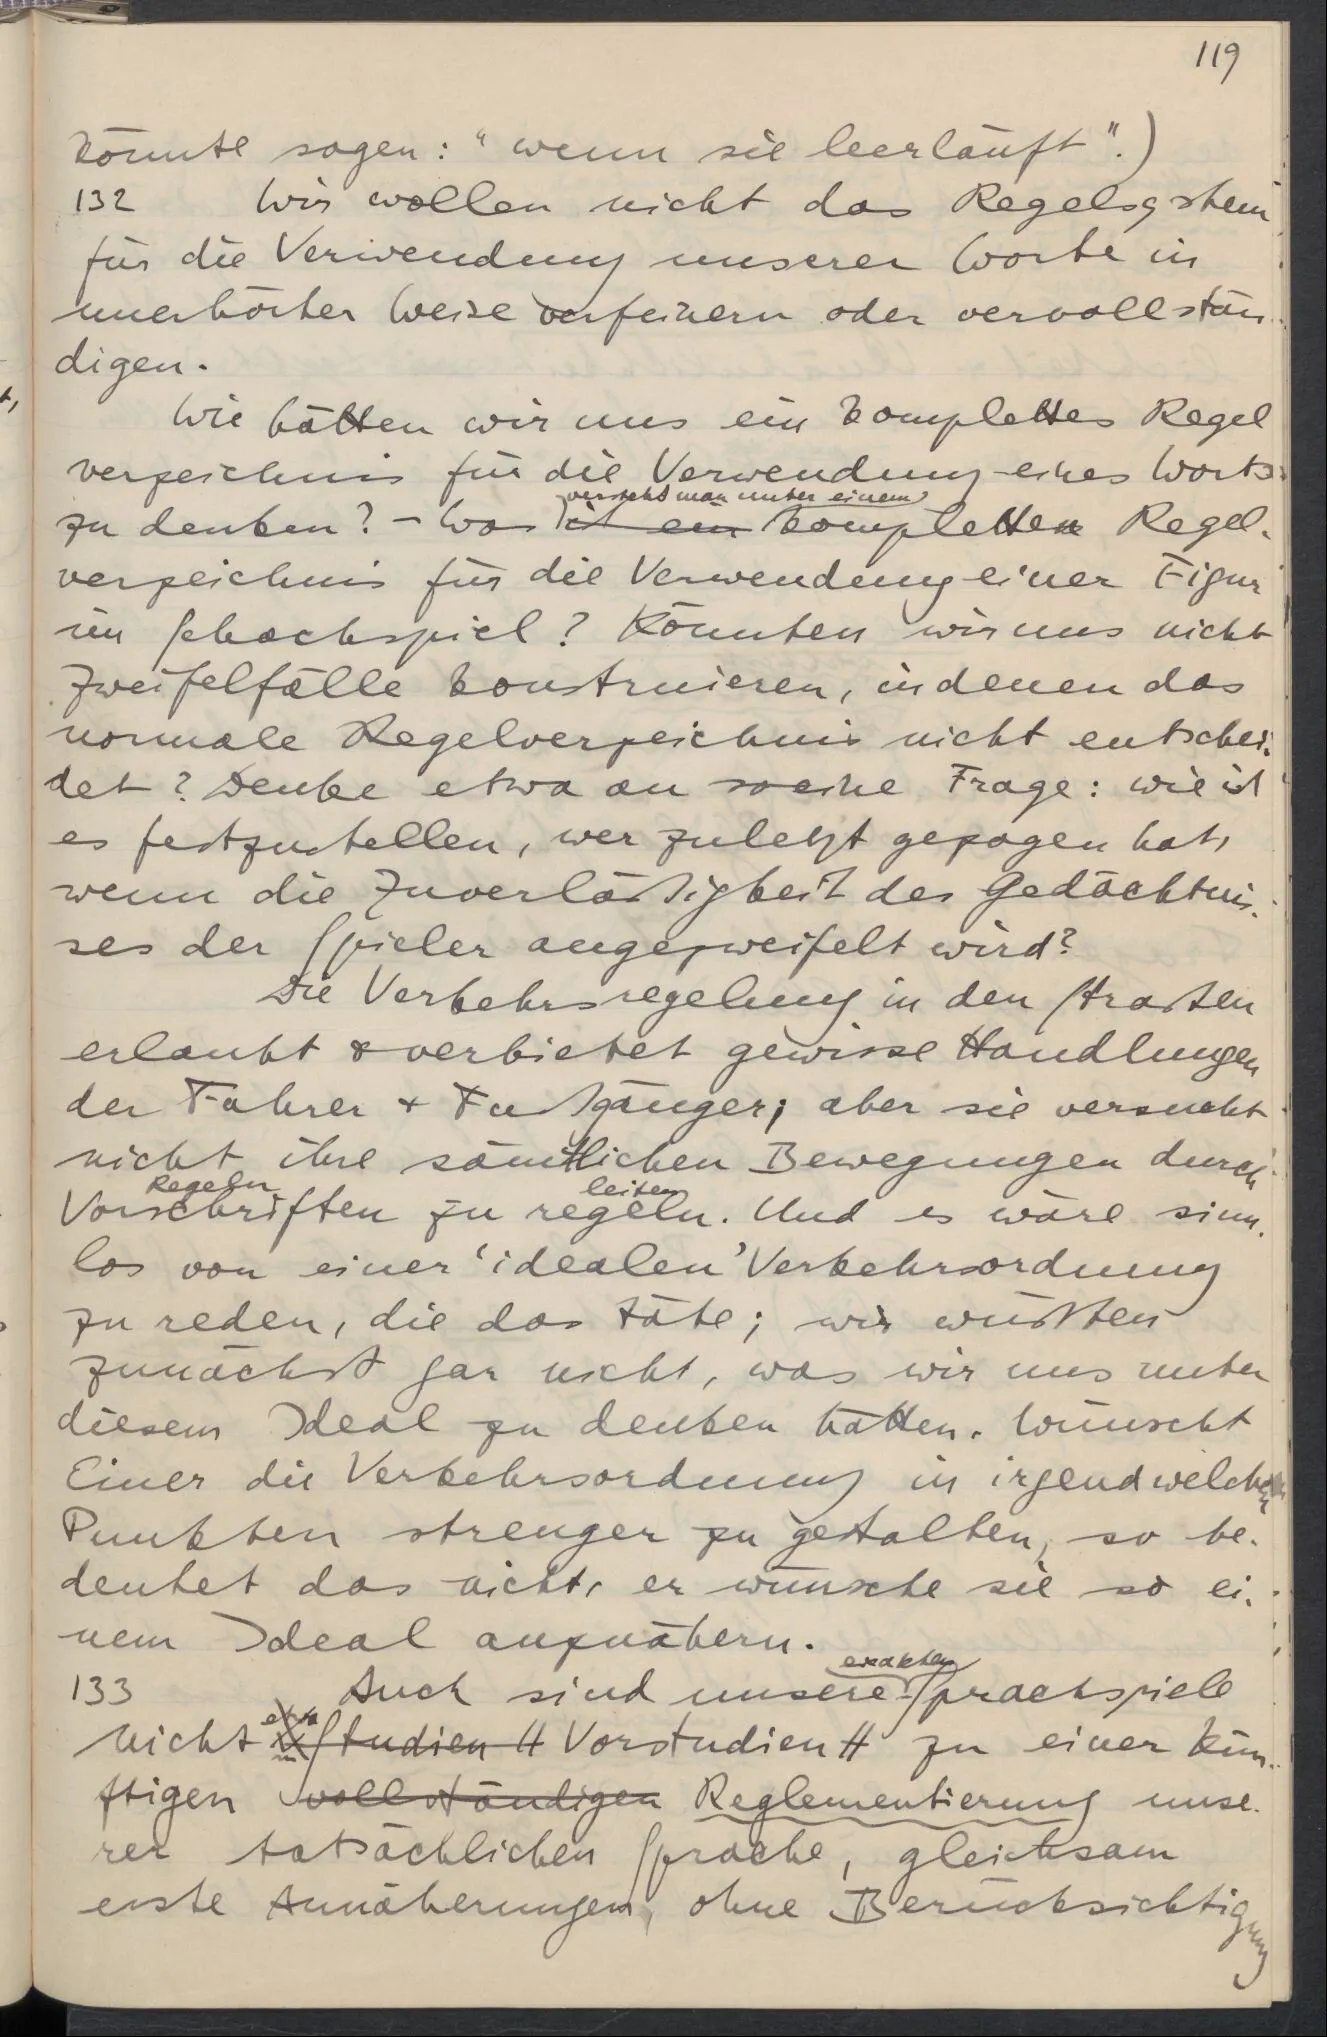 119
könnte sagen: "wenn sie leerläuft".)
132 Wir wollen nicht das Regelsystem
für die Verwendung unserer Worte in
unerhörter Weise verfeinern oder vervollstän-
digen.
Wie hätten wir uns ein komplettes Regel
verzeichnis für die Verwendung eines Worts
versteht man unter einem
zu denken? – Was ist ein kompletten Regel-
verzeichnis für die Verwendung einer Figur
im Schachspiel? Könnten wir uns nicht
Zweifelfälle konstruieren, in denen das
normale Regelverzeichnis nicht entschei-
det? Denke etwa an so eine Frage: wie ist
es festzustellen, wer zuletzt gezogen hat,
wenn die Zuverläßigkeit des Gedächtnis-
ses der Spieler angezweifelt wird?
Die Verkehrsregelung in den Straßen
erlaubt & verbietet gewisse Handlungen
der Fahrer & Fußgänger; aber sie versucht
nicht ihre sämtlichen Bewegungen durch
Regeln leiten
Vorschriften zu regeln. Und es wäre sinn-
los von einer 'idealen' Verkehrsordnung
zu reden, die das täte; wir wüßten
zunächst gar nicht, was wir uns unter
diesem Ideal zu denken hätten. Wünscht
Einer die Verkehrsordnung in irgendwelchen
Punkten strenger zu gestalten, so be-
deutet das nicht, er wünsche sie so ei-
nem Ideal anzunähern.
exakten
133 Auch sind unsere Sprachspiele
etwa
nicht Studien // Vorstudien // zu einer kün-
ftigen vollständigen Reglementierung unse-
rer tatsächlichen Sprache, gleichsam
erste Annäherungen, ohne Berücksichtigung